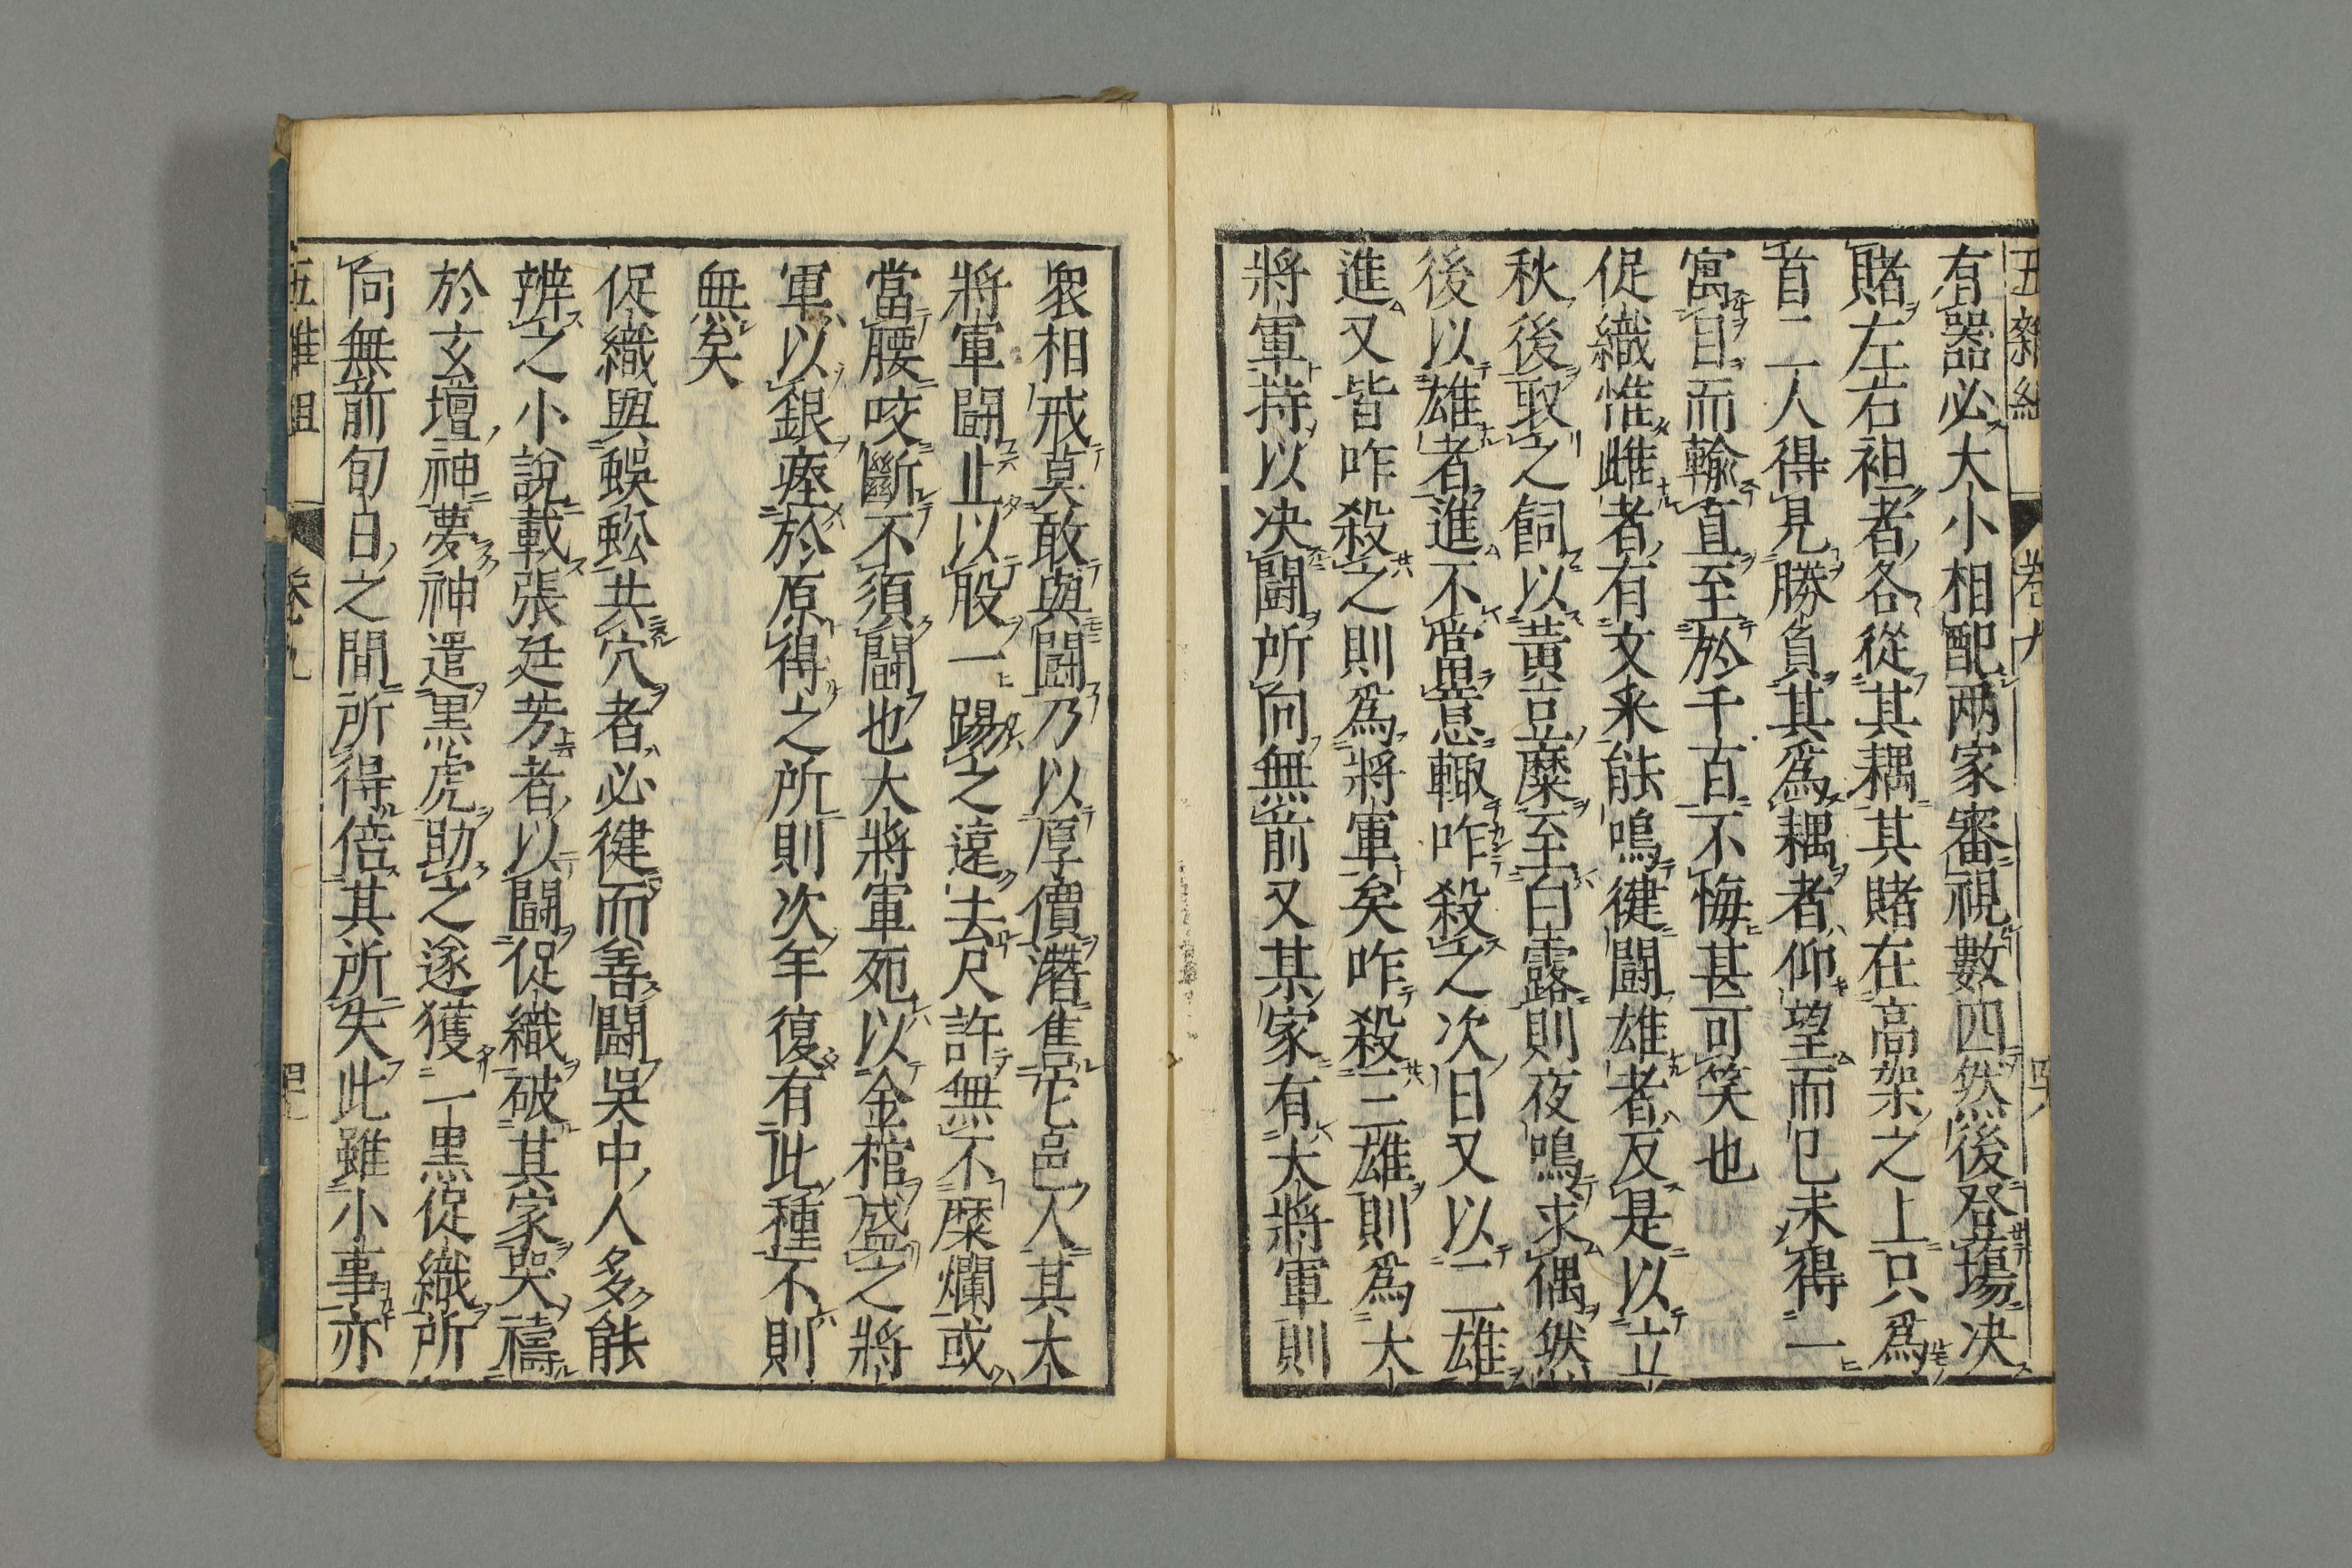 五雜組 卷九
有器必大小相配兩家審視數四然後登場决
賭左右袒者各從其耦其賭在高架之上只爲
首二人得見勝負其爲耦者仰望而已未得一
寓目而輸直至於千百不悔甚可笑也
促織惟雌者有文采能鳴健鬪雄者反是以立
秋後取之飼以黃豆糜至白露則夜鳴求偶然
後以雄者進不當意輙咋殺之次日又以二雄
進又皆咋殺之則爲將軍矣咋殺三雄則爲大
將軍持以决鬪所向無前又某家有大將軍則
衆相戒莫敢與鬪乃以厚價潛售它邑人其大
將軍鬪止以股一踢之遠去尺許無不糜爛或
當腰咬斷不須鬪也大將軍死以金棺盛之將
軍以銀瘞於原得之所則次年復有此種不則
無矣
促織與蜈蚣共穴者必健而善鬪吳中人多能
辨之小說載張廷芳者以鬪促織破其家哭禱
於玄壇神夢神遣黒虎助之遂獲一黒促織所
向無前旬日之間所得倍其所失此雖小事亦
五雜組 卷九